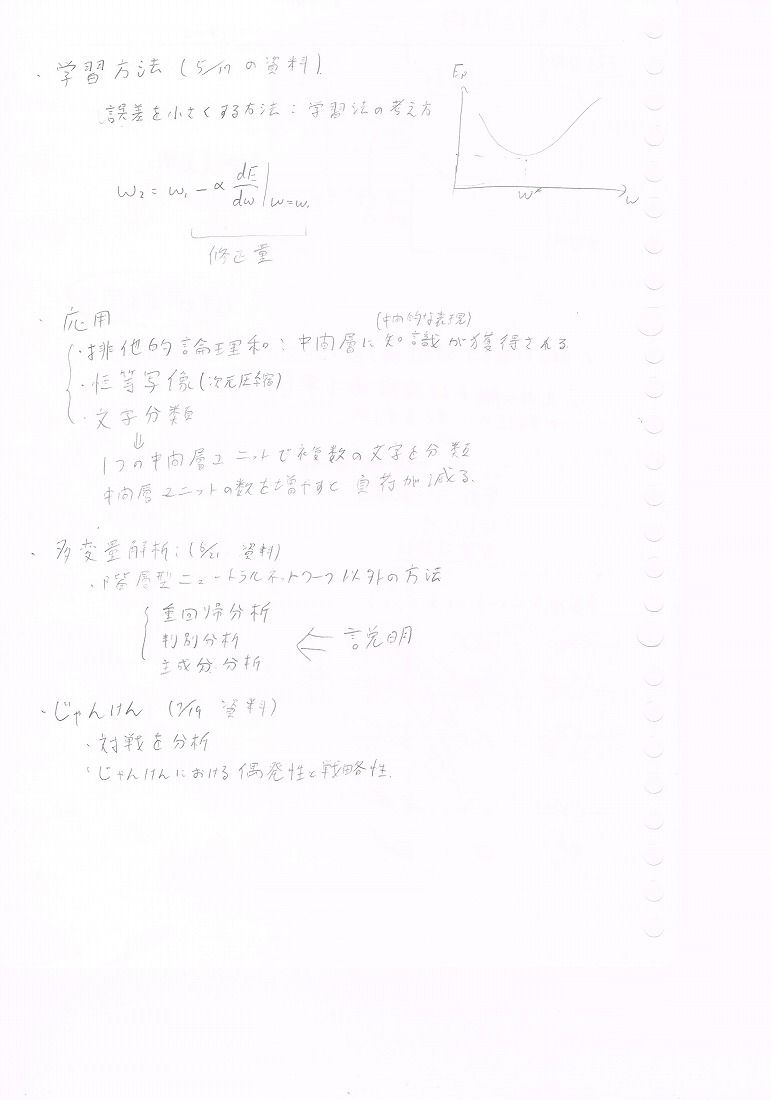 ・学習方法 (5/17 の資料)
誤差を小さくする方法：学習法の考え方
Ep
w*
w
w₂ = w₁ - α dE/dw |w=w₁
修正量
・応用
(中間的な表現)
・排他的論理和：中間層に知識が獲得される
・恒等写像(次元圧縮)
・文字分類
⇓
1つの中間層ユニットで複数の文字を分類
中間層ユニットの数を増やすと負荷が減る.
・多変量解析：(6/21 資料)
・階層型ニュートラルネットワーク以外の方法
重回帰分析
判別分析 ← 説明
主成分分析
・じゃんけん (7/19 資料)
・対戦を分析
・じゃんけんにおける偶発性と戦略性.